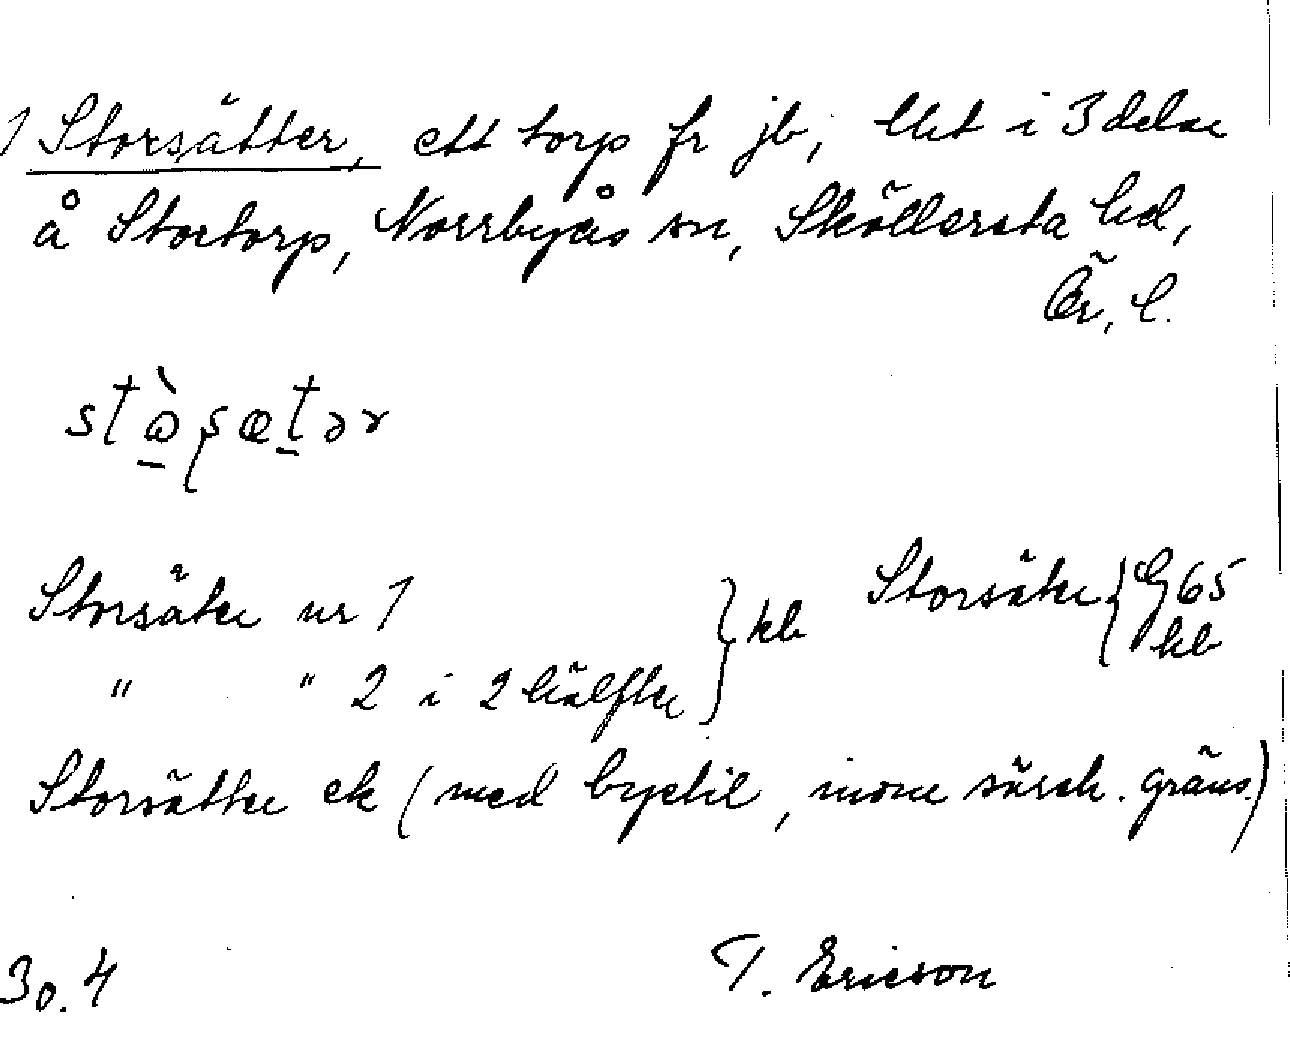 1 Storsätter, ett torp fr jb, lht i 3 delar
å Stortorp, Norrbyås sn, Sköllersta hd,
Ör. l.
stὼʂætər
Storsäter nr 1 } kb Storsäter { G65 kb
" " 2 i 2 hälfter
Storsätter ek (med bystil, inom särsk. gräns)
30.4 T. Ericson